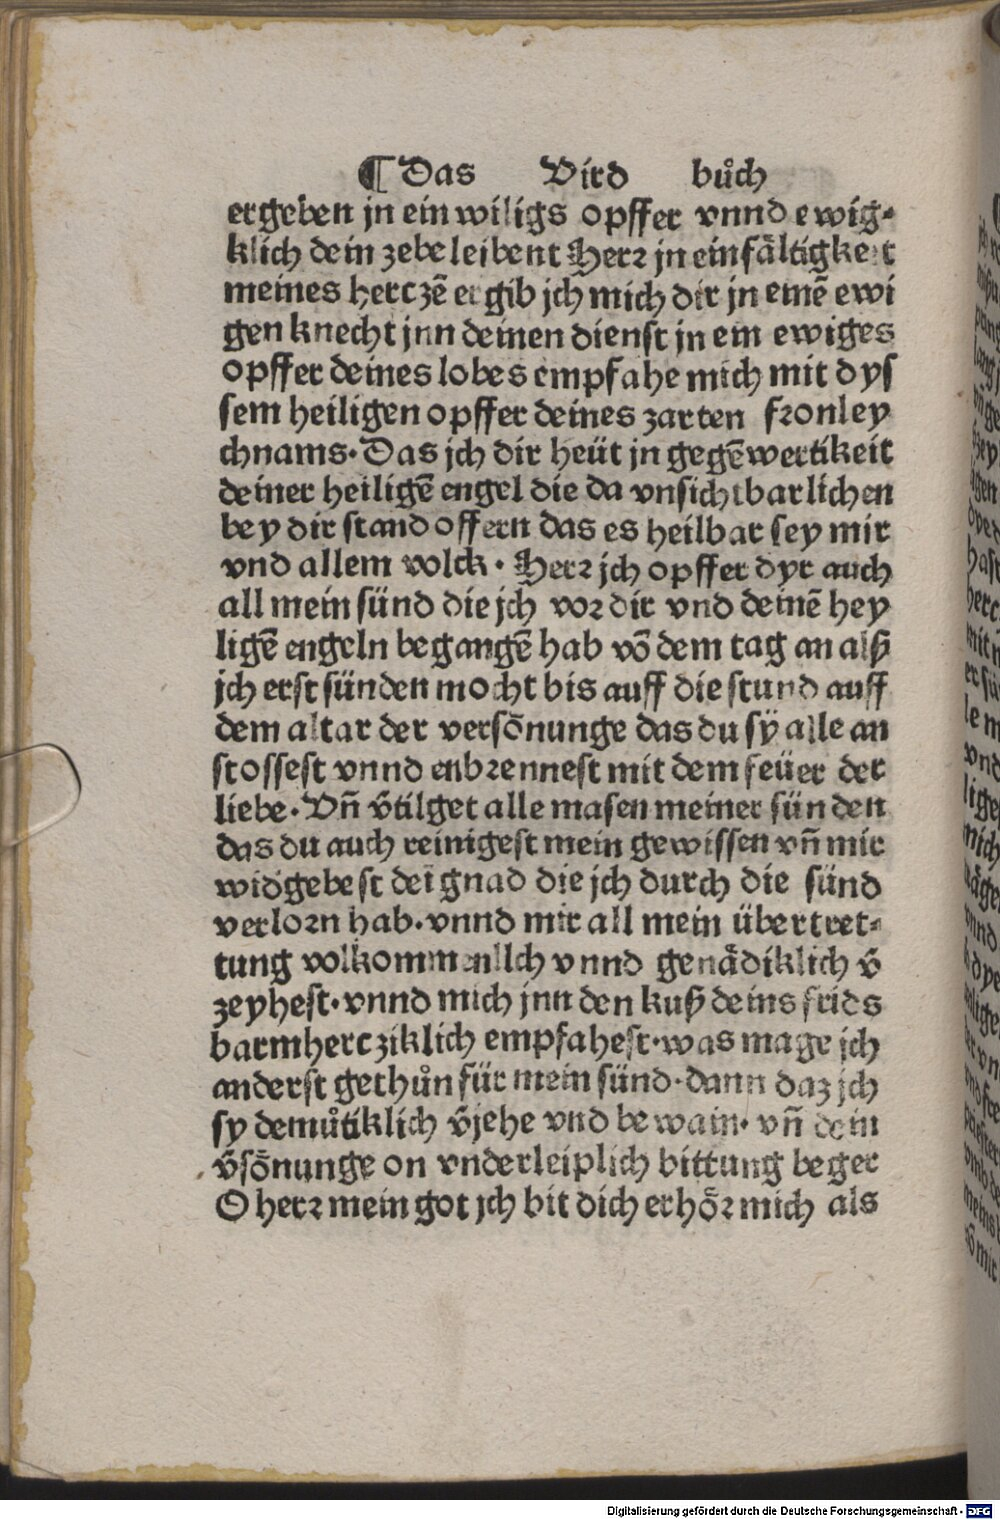 ¶ Das Vird bůch
ergeben jn ein wiligs opffer vnnd ewig⸗
klich dein zebeleibent Herꝛ jn einfältigkeit
meines hertzē ergib jch mich dir jn einē ewi
gen knecht jnn deinen dienst jn ein ewiges
opffer deines lobes empfahe mich mit dys
sem heiligen opffer deines zarten fꝛonley
chnams. Das jch dir heüt jn gegēwertikeit
deiner heiligē engel die da vnsichtbarlichen
bey dir stand offern das es heilbar sey mir
vnd allem volck. Herꝛ jch opffer dyr auch
all mein sünd die jch voꝛ dir vnd deinē hey
ligē engeln begangē hab vō dem tag an alß
jch erst sünden mocht bis auff die stund auff
dem altar der versönunge das du sÿ alle an
stossest vnnd enbꝛennest mit dem feüer der
liebe. Vn̄ v̄tilget alle masen meiner sünden
das du auch reinigest mein gewissen vn̄ mir
widgebest deī gnad die jch durch die sünd
verloꝛn hab. vnnd mir all mein übertret⸗
tung volkommenllch vnnd genädiklich v̄
zeyhest. vnnd mich jnn den kuß deins frids
barmhercziklich empfahest. was mage jch
anderst gethůn für mein sünd. dann daz jch
sy demůtiklich v̄jehe vnd bewain. vn̄ dein
v̄sönunge on vnderleiplich bittung beger
O herꝛ mein got jch bit dich erhöꝛ mich als
Digitalisierung gefördert durch die Deutsche Forschungsgemeinschaft - DFG